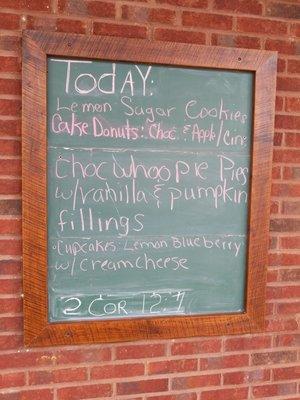 Today:
Lemon Sugar Cookies
Cake Donuts: Choc & Apple/Cinn
Choc Whoopie Pies
w/vanilla & pumpkin
fillings
Cupcakes: Lemon Blueberry
w/ Creamcheese
2 Cor. 12:7